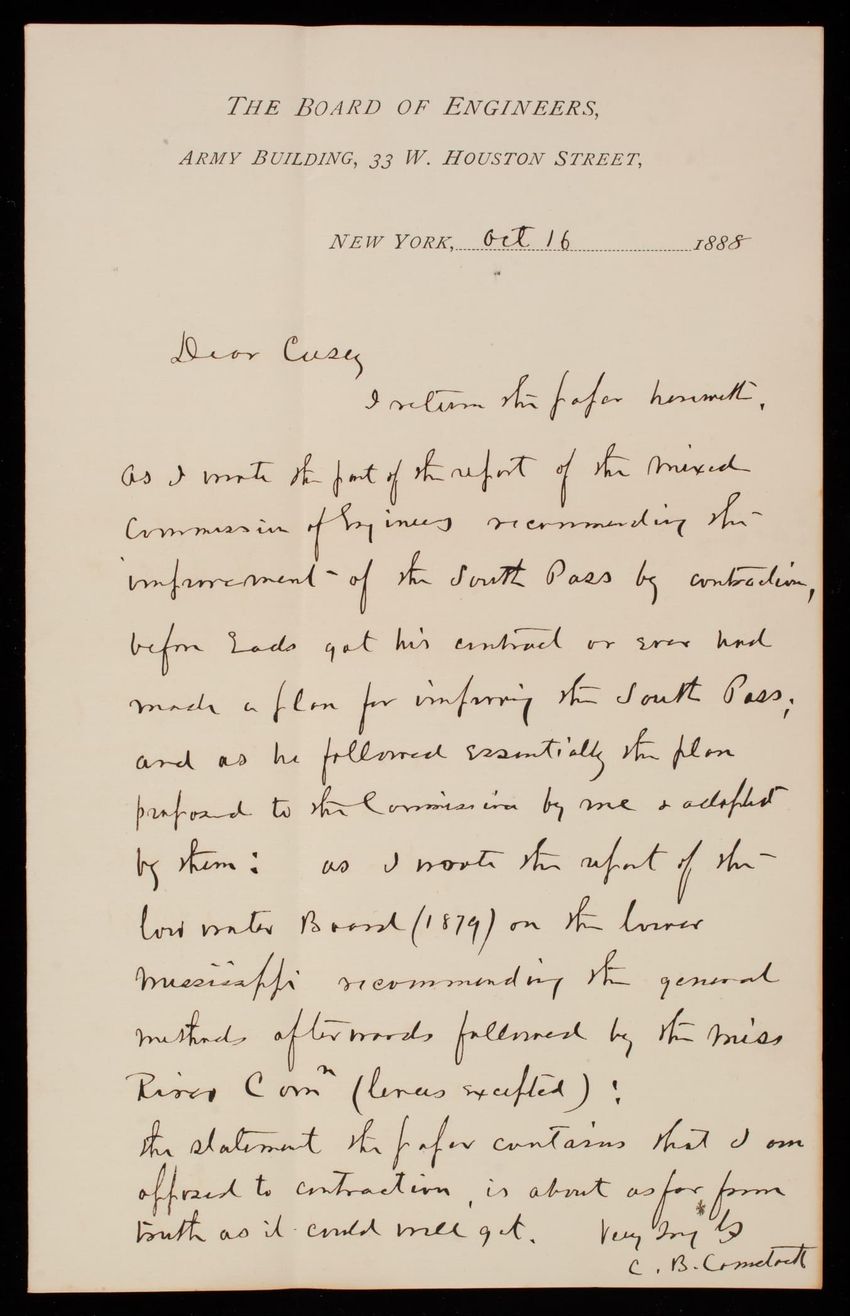 THE BOARD OF ENGINEERS,
ARMY BUILDING, 33 W. HOUSTON STREET,
NEW YORK, Oct 16 1888
Dear Casey
I return the paper herewith.
As I wrote the part of the report of the Mixed
Commission of Engineers recommending the
improvement of the South Pass by contraction,
before Eads got his contract or ever had
made a plan for improving the South Pass;
and as he followed essentially the plan
proposed to the Commission by me & adopted
by them: as I wrote the report of the
low water Board (1879) on the lower
Mississippi recommending the general
methods afterwards followed by the Miss
River Comn (levees excepted):
the statement the paper contains that I am
opposed to contraction, is about as far from
truth as it could well get. Very truly yrs
C. B. Comstock